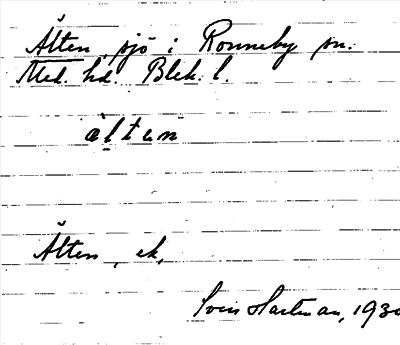 Älten, sjö i Ronneby sn.
Med. hd. Blek. l.
älten
Älten, ek,
Sven Hartman, 193